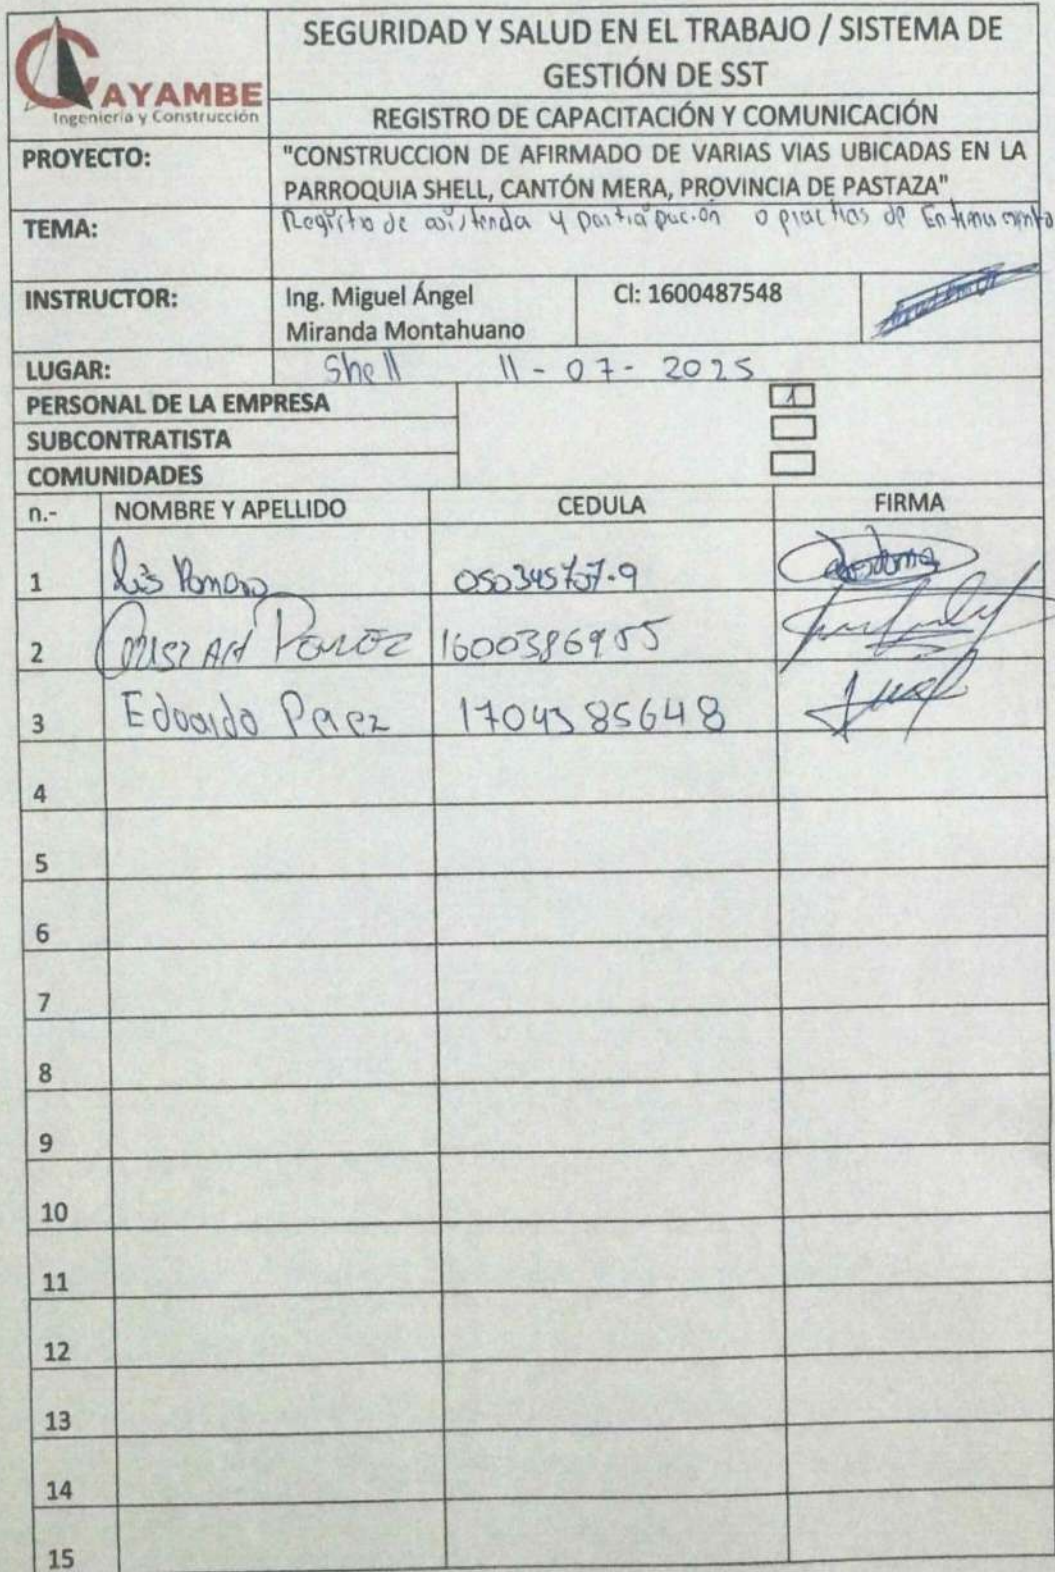 CAYAMBE
Ingeniería y Construcción
SEGURIDAD Y SALUD EN EL TRABAJO / SISTEMA DE
GESTIÓN DE SST
REGISTRO DE CAPACITACIÓN Y COMUNICACIÓN
PROYECTO:
"CONSTRUCCION DE AFIRMADO DE VARIAS VIAS UBICADAS EN LA
PARROQUIA SHELL, CANTÓN MERA, PROVINCIA DE PASTAZA"
TEMA:
Registro de asistencia y participación o practicas de Entrenamiento
INSTRUCTOR:
Ing. Miguel Ángel
Miranda Montahuano
CI: 1600487548
LUGAR:
Shell 11-07-2025
PERSONAL DE LA EMPRESA 1
SUBCONTRATISTA
COMUNIDADES
n.- NOMBRE Y APELLIDO CEDULA FIRMA
1 Luis
2 Cristian 1600386955
3 Eduardo Perez 1704385648
4
5
6
7
8
9
10
11
12
13
14
15